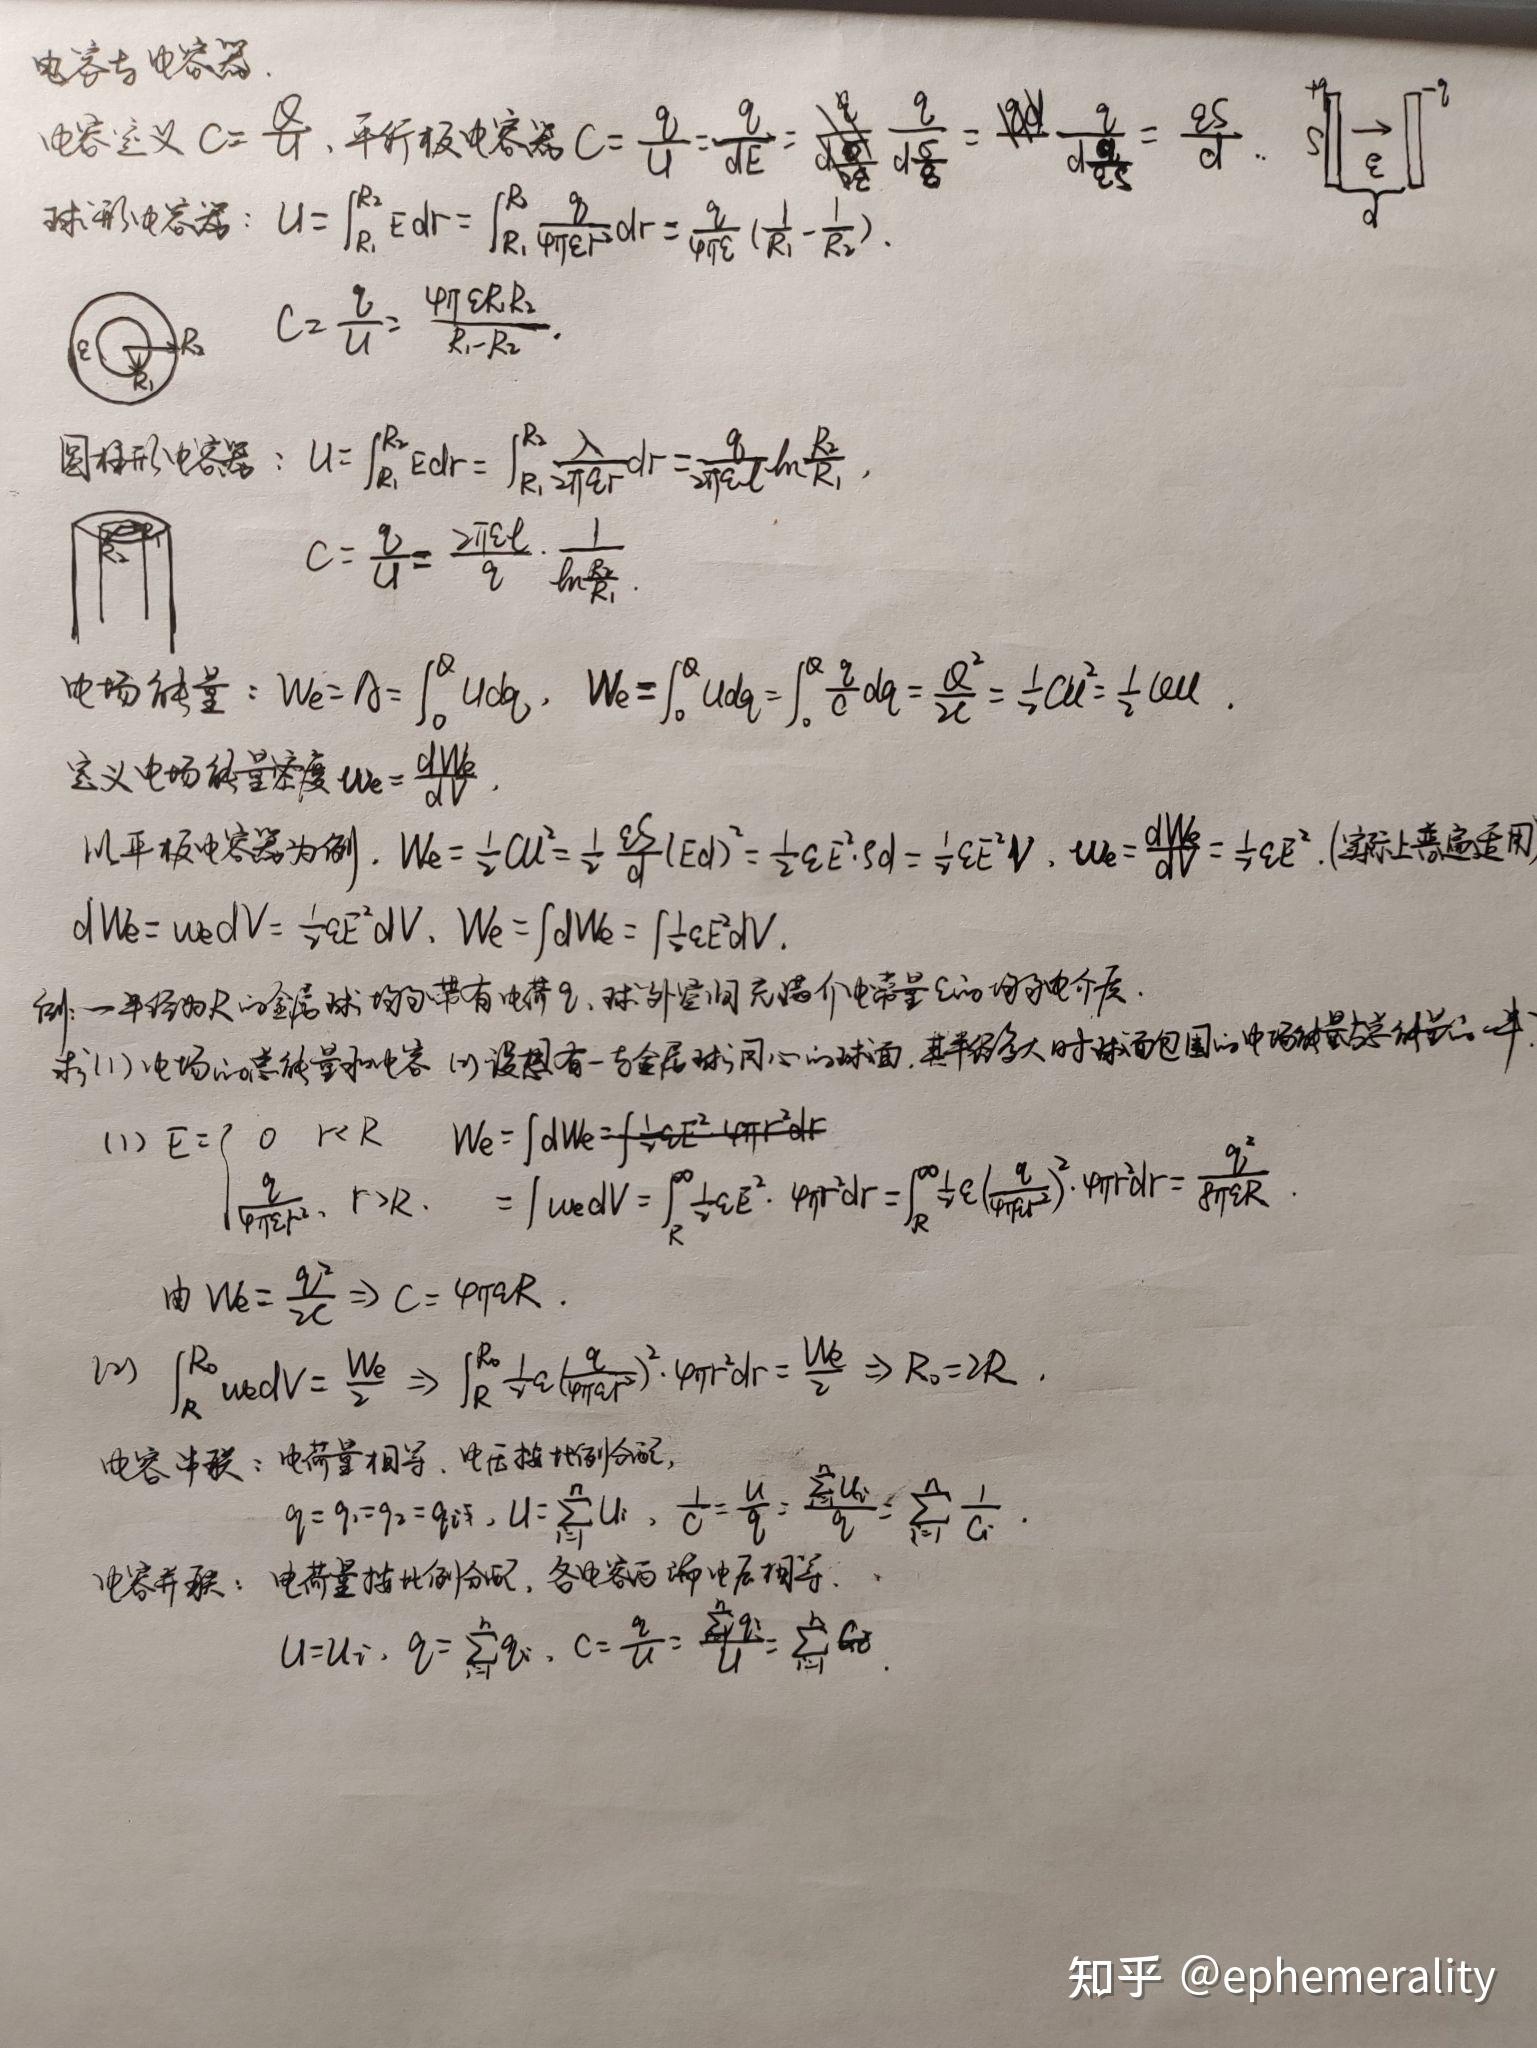 电容与电容器.
电容定义 C = Q/U 、平行板电容器 C = q/U = q/(dE) = q/(d S/ε) = q/(d q/(εS)) = εS/d . +q -q S ε d
球形电容器: U = ∫_{R1}^{R2} E dr = ∫_{R1}^{R2} q/(4πεr²) dr = q/(4πε) (1/R1 - 1/R2).
C = q/U = 4πεR1R2/(R1-R2).
ε R2 R1
圆柱形电容器: U = ∫_{R1}^{R2} E dr = ∫_{R1}^{R2} λ/(2πεr) dr = q/(2πεl) ln R2/R1,
C = q/U = 2πεl/q · 1/(ln R2/R1).
R2 R1
电场能量: We = A = ∫_0^Q U dq, We = ∫_0^Q U dq = ∫_0^Q q/C dq = Q²/2C = 1/2 CU² = 1/2 QU.
定义电场能量密度 we = dWe/dV.
以平板电容器为例. We = 1/2 CU² = 1/2 εS/d (Ed)² = 1/2 εE²·Sd = 1/2 εE²V. we = dWe/dV = 1/2 εE². (实际上普遍适用)
dWe = we dV = 1/2 εE² dV. We = ∫dWe = ∫ 1/2 εE² dV.
例: 一半径为R的金属球均匀带有电荷q、球外空间充满介电常量ε的均匀电介质.
求(1)电场的总能量和电容 (2)设想有一与金属球同心的球面,其半径多大时球面包围的电场能量与总能量的一半?
(1) E = { 0 r<R We = ∫dWe = ∫ 1/2 εE²·4πr²dr
q/(4πεr²), r>R. = ∫ we dV = ∫_R^∞ 1/2 εE²·4πr²dr = ∫_R^∞ 1/2 ε(q/(4πεr²))²·4πr²dr = q²/(8πεR).
由 We = q²/2C ⇒ C = 4πεR.
(2) ∫_R^{R0} we dV = We/2 ⇒ ∫_R^{R0} 1/2 ε(q/(4πεr²))²·4πr²dr = We/2 ⇒ R0 = 2R.
电容串联: 电荷量相等、电压按比例分配,
q = q1 = q2 = qi, U = Σ_{i=1}^n Ui, 1/C = U/q = Σ_{i=1}^n Ui/q = Σ_{i=1}^n 1/Ci.
电容并联: 电荷量按比例分配, 各电容两端电压相等.
U = Ui, q = Σ_{i=1}^n qi, C = q/U = Σ_{i=1}^n qi/U = Σ_{i=1}^n Ci.
知乎 @ephemerality